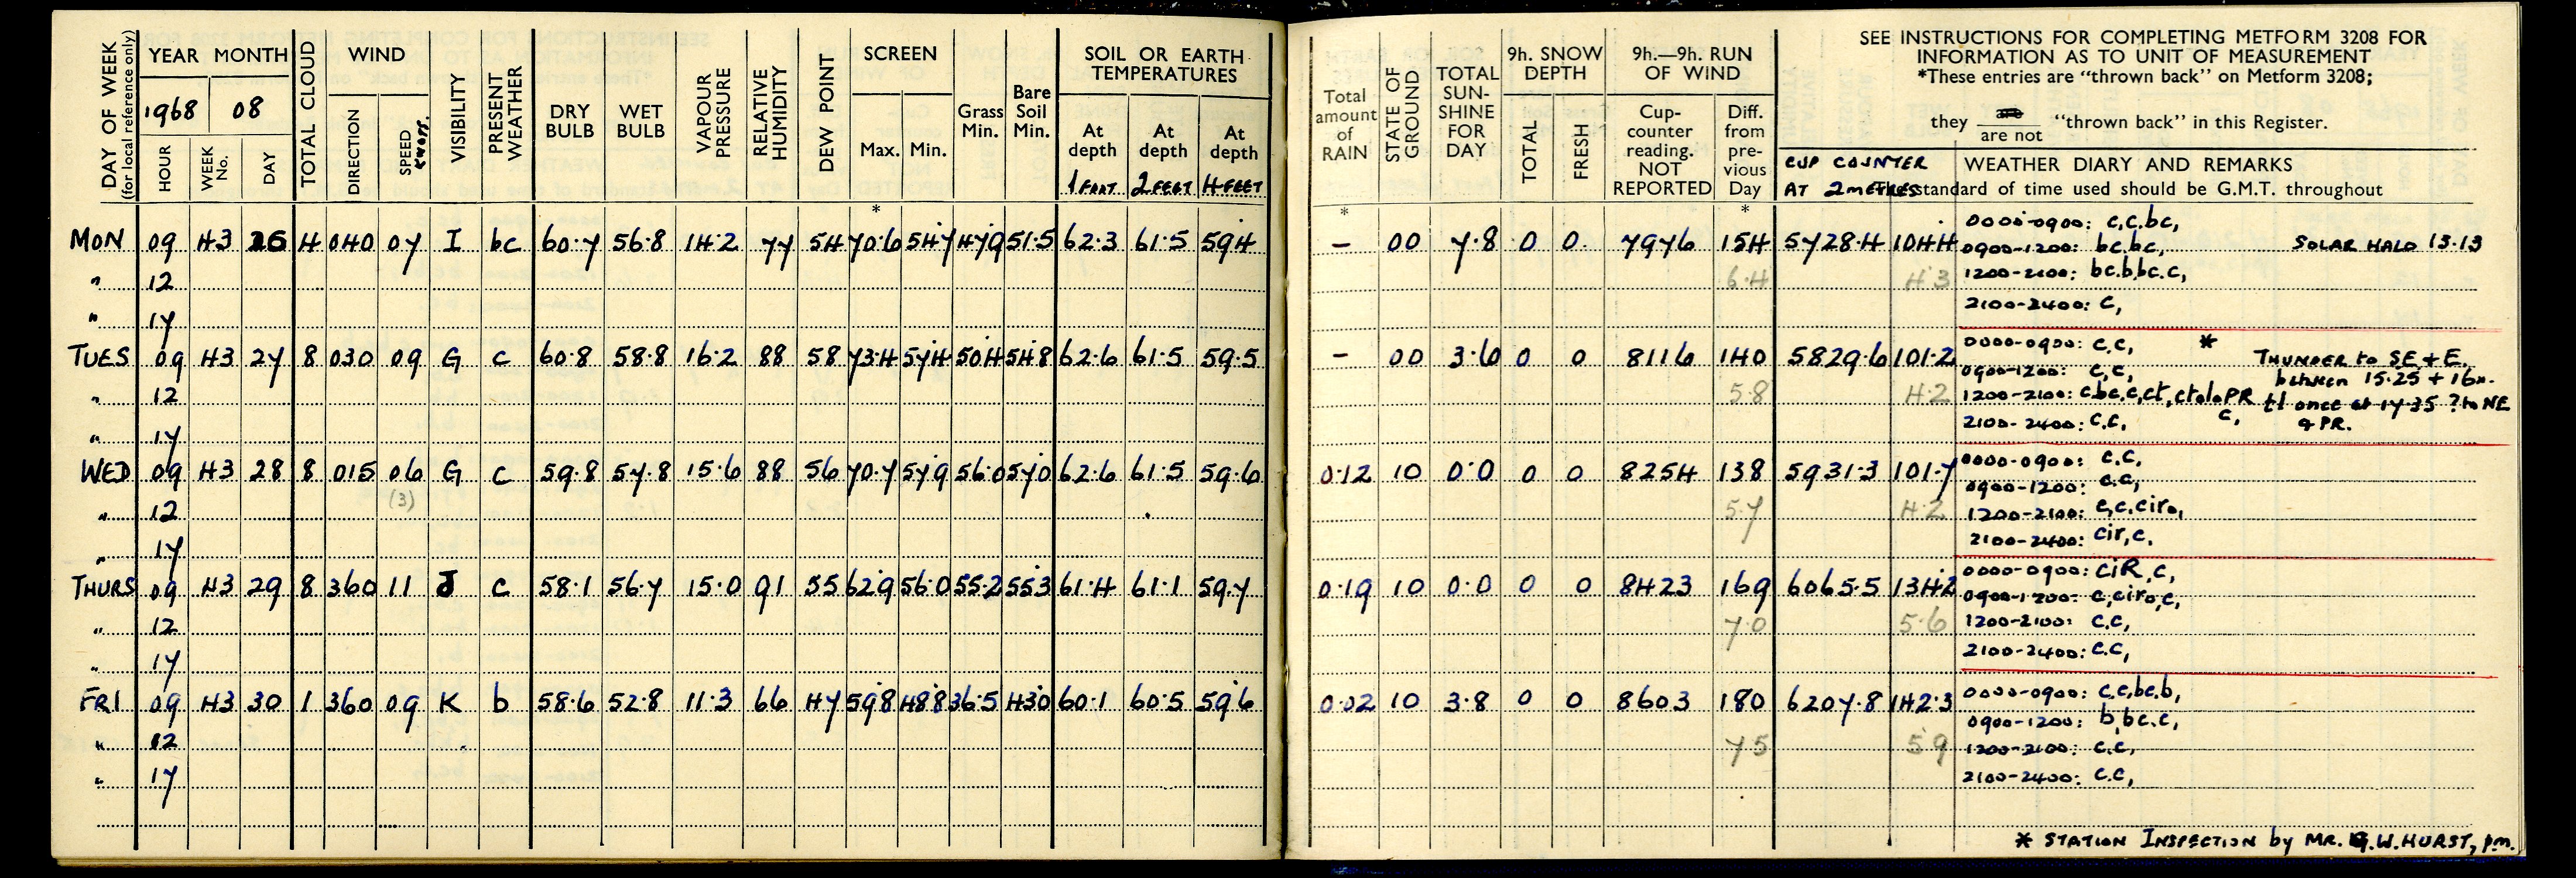 DAY OF WEEK (for local reference only) YEAR MONTH TOTAL CLOUD WIND VISIBILITY PRESENT WEATHER DRY BULB WET BULB VAPOUR PRESSURE RELATIVE HUMIDITY DEW POINT SCREEN Grass Min. Bare Soil Min. SOIL OR EARTH TEMPERATURES
1968 08
HOUR WEEK No. DAY DIRECTION SPEED KNOTS. Max. Min. At depth 1 FOOT At depth 2 FEET At depth 4 FEET
*
MON 09 43 26 4 040 07 I bc 60.7 56.8 14.2 77 54 70.6 54.7 47.9 51.5 62.3 61.5 59.4
" 12
" 17
TUES 09 43 27 8 030 09 G c 60.8 58.8 16.2 88 58 73.4 57.4 50.4 54.8 62.6 61.5 59.5
" 12
" 17
WED 09 43 28 8 015 06 G c 59.8 57.8 15.6 88 56 70.7 57.9 56.0 57.0 62.6 61.5 59.6
(3)
" 12
" 17
THURS 09 43 29 8 360 11 J c 58.1 56.7 15.0 91 55 62.9 56.0 55.2 55.3 61.4 61.1 59.7
" 12
" 17
FRI 09 43 30 1 360 09 K b 58.6 52.8 11.3 66 47 59.8 48.8 36.5 43.0 60.1 60.5 59.6
" 12
" 17
Total amount of RAIN STATE OF GROUND TOTAL SUN-SHINE FOR DAY 9h. SNOW DEPTH TOTAL FRESH 9h.—9h. RUN OF WIND Cup-counter reading. NOT REPORTED Diff. from pre-vious Day
SEE INSTRUCTIONS FOR COMPLETING METFORM 3208 FOR
INFORMATION AS TO UNIT OF MEASUREMENT
*These entries are "thrown back" on Metform 3208;
they are / are not "thrown back" in this Register.
CUP COUNTER AT 2 METRES
WEATHER DIARY AND REMARKS
The standard of time used should be G.M.T. throughout
* *
– 00 7.8 0 0 7976 154 5728.4 104.4
6.4 4.3
0000-0900: c,c.bc,
0900-1200: bc,bc,
SOLAR HALO 13.13
1200-2100: bc.b,bc.c,
2100-2400: c,
– 00 3.6 0 0 8116 140 5829.6 101.2
5.8 4.2
0000-0900: c.c, *
0900-1200: c,c,
1200-2100: c.bc.c,ct,ctoloPR c,
2100-2400: c.c,
THUNDER to SE + E.
between 15.25 + 16
tl once at 17.35 ? to NE
& PR.
0.12 10 0.0 0 0 8254 138 5931.3 101.7
5.7 4.2
0000-0900: c.c,
0900-1200: c.c,
1200-2100: c,c.ciro,
2100-2400: cir,c.
0.19 10 0.0 0 0 8423 169 6065.5 134.2
7.0 5.6
0000-0900: ciR,c,
0900-1200: c,ciro,c,
1200-2100: c.c,
2100-2400: c.c,
0.02 10 3.8 0 0 8603 180 6207.8 142.3
7.5 5.9
0000-0900: c.c,bc.b,
0900-1200: b,bc.c,
1200-2100: c.c,
2100-2400: c.c,
* STATION INSPECTION by MR. G.W.HURST, p.m.